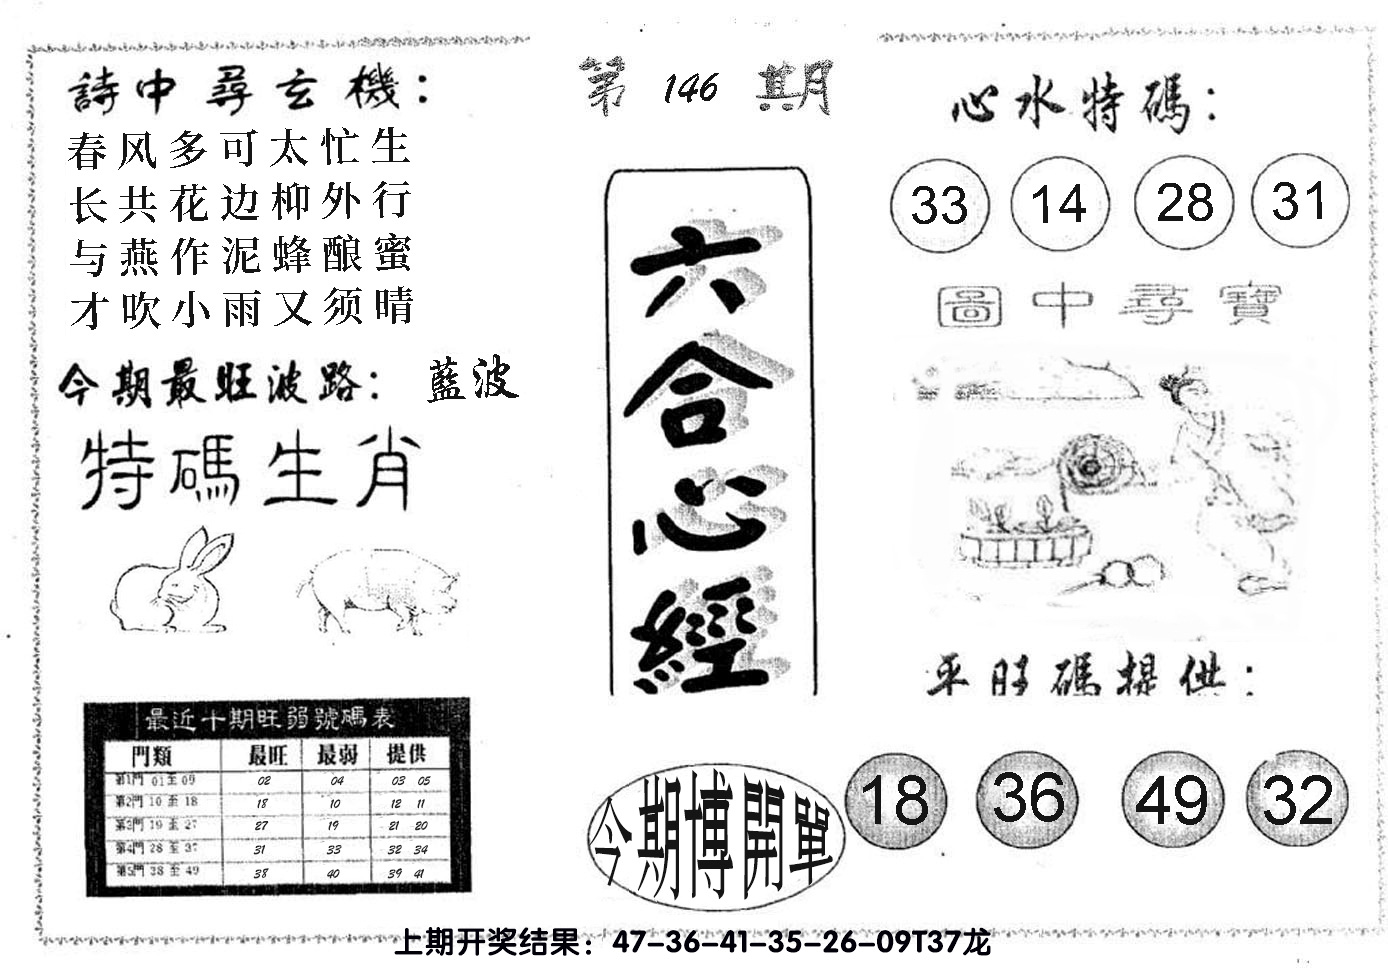 第 146 期
詩中尋玄機：
春风多可太忙生
长共花边柳外行
与燕作泥蜂酿蜜
才吹小雨又须晴
今期最旺波路： 藍波
特碼生肖
最近十期旺弱號碼表
門類 最旺 最弱 提供
第1門 01至09 02 04 03 05
第2門 10至18 18 10 12 11
第3門 19至27 27 19 21 20
第4門 28至37 31 33 32 34
第5門 38至49 38 40 39 41
六合心經
今期博開單
心水特碼：
33 14 28 31
圖中尋寶
平旺碼提供：
18 36 49 32
上期开奖结果：47-36-41-35-26-09T37龙